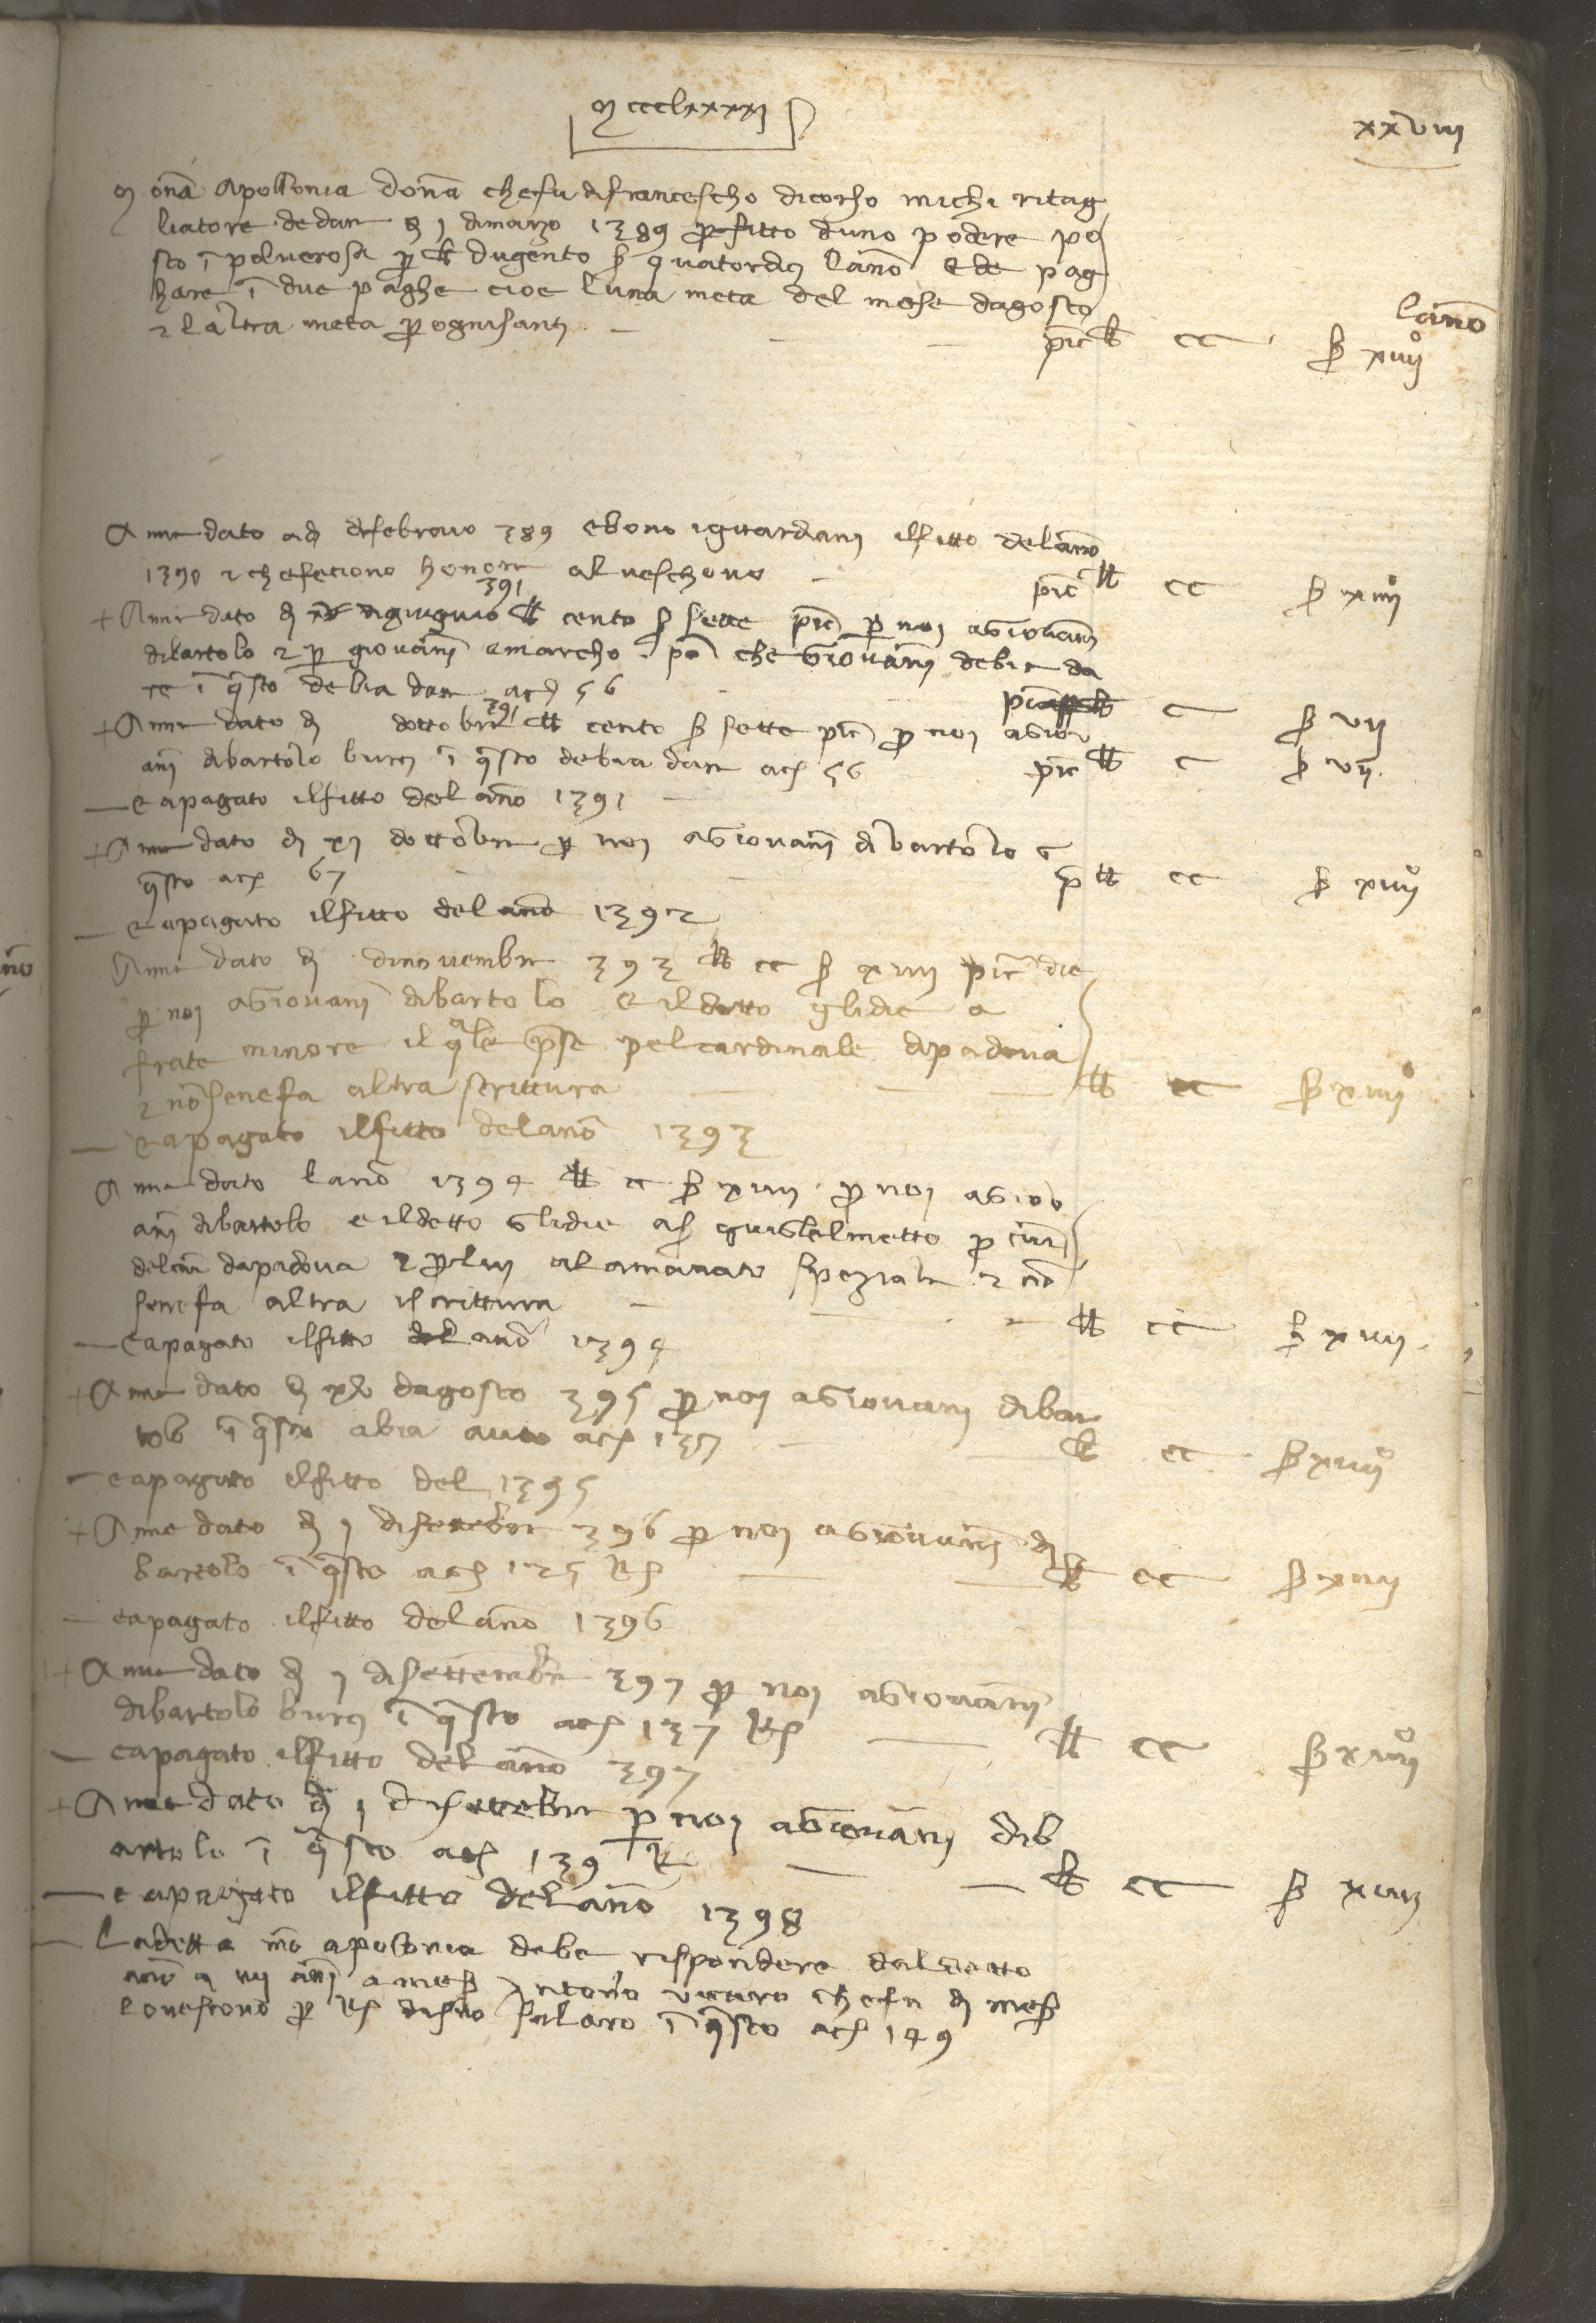 mccclxxxxj
xxviii
monā apollonia donā che fu di francescho di corso michi ritag
liatore de dare dj 1 di marzo 1389 per fitto duno podere po
sto ī polverosa per lb dugento s quatordici lāno e de pag
hare ī due paghe cioe luna meta del mese dagosto
e laltra meta per ognisanti
lāno
pic lb cc s xiiij°
A mi dato adj di febraio 389 ebono i guardani il fitto delāno
1390 e che feciono honore al veschovo pic lb cc s xiiij°
391
+ A mi dato dj di giugnio lb cento s sette pic per noi a giovani
di bartolo e per giovāni a marcho pō che giovāni debia da
re ī qsto debia dare a c 56 c s vij
391
+ A mi dato dj dottobre lb cento s sette pic per noi a giov
ani di bartolo buci ī qsto debia dare a c 56 pic lb c s vij
— e a pagato il fitto del āno 1391
+ A mi dato dj xj dottobre per noi a giovani di bartolo ī
qsto a c 67 p lb cc s xiiij°
— e a pagato il fitto del āno 1392
A mi dato dj di novembre 393 lb cc s xiiij pic die
per noi a giovani di bartolo e il detto gli die a
frate minore il qle prese pel cardinale di padova
e nō se ne fa altra scrittura lb cc s xiiij°
— e a pagato il fitto del anō 1393
A mi dato lanō 1394 lb cc s xiiij per noi a giov
ani di bartolo e il detto gli die a s guiglelmetto per
da padova e per lui al amanato speziale e nō
se ne fa altra iscrittura lb cc s xiiij
— e a pagato il fitto del anō 1394
+ A mi dato dj dagosto 395 per noi a giovani di bar
tolo ī qsto abia auto a c lb cc s xiiij°
— e a pagato il fitto del 1395
+ A me dato dj j di settēbre 396 per noi a giovāni di
bartolo ī qsto a c 125 lb cc s xiiij
— e a pagato il fitto del āno 1396
+ A mi dato dj j di settembre 397 per noi a giovāni
di bartolo buci ī qsto a c 137 lb cc s xiiij°
— e a pagato il fitto del āno 397
+ A mi dato dj j di settēbre per noi a giovāni di b
artolo ī qsto a c 139 lb cc s xiiij
— e a pagato il fitto del āno 1398
— La detta mō apolonia debe rispondere dal detto
a mess antonio che fu di mess
lo vescovo per di suo salaro ī qsto a c 149